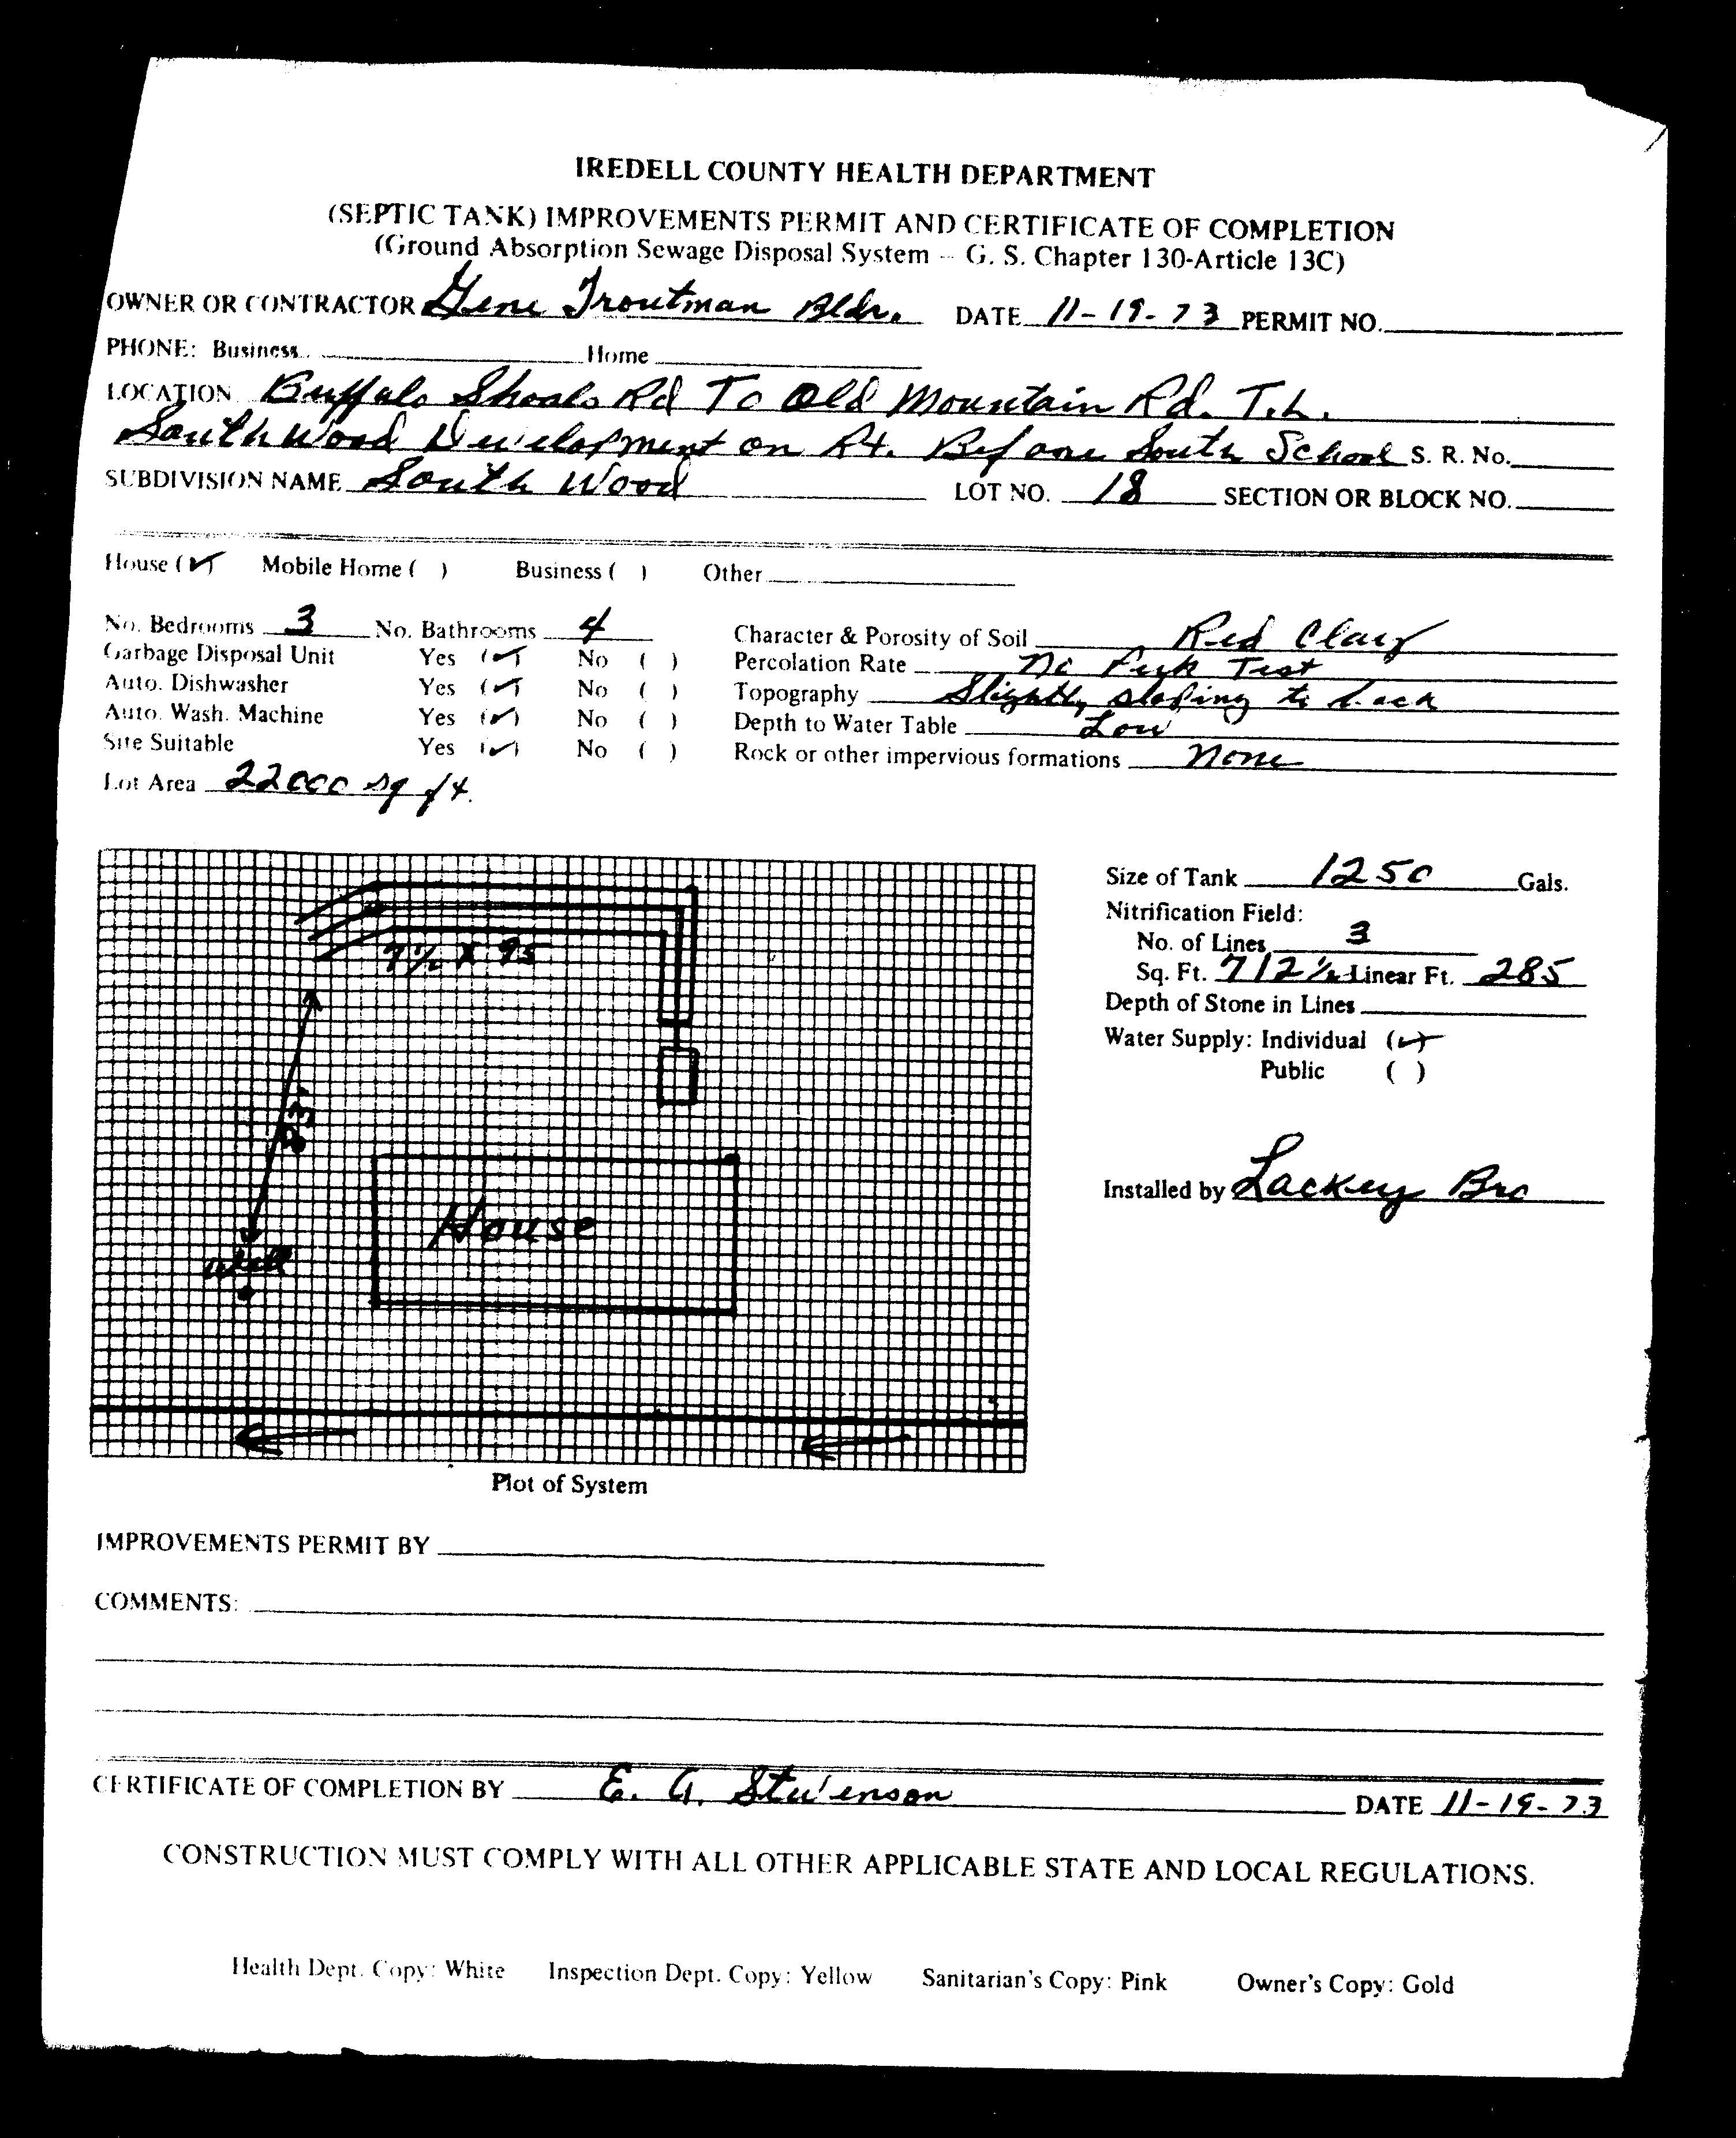 IREDELL COUNTY HEALTH DEPARTMENT
(SEPTIC TANK) IMPROVEMENTS PERMIT AND CERTIFICATE OF COMPLETION
(Ground Absorption Sewage Disposal System - G. S. Chapter 130-Article 13C)
OWNER OR CONTRACTOR Gene Troutman Bldr. DATE 11-19-73 PERMIT NO.
PHONE: Business Home
LOCATION Buffalo Shoals Rd To Old Mountain Rd. T.L.
South Wood Development on Rt. Before South School S. R. No.
SUBDIVISION NAME South Wood LOT NO. 18 SECTION OR BLOCK NO.
House (✓) Mobile Home ( ) Business ( ) Other
No. Bedrooms 3 No. Bathrooms 4 Character & Porosity of Soil Red Clay
Garbage Disposal Unit Yes (✓) No ( ) Percolation Rate No Perk Test
Auto. Dishwasher Yes (✓) No ( ) Topography Slightly sloping to back
Auto. Wash. Machine Yes (✓) No ( ) Depth to Water Table Low
Site Suitable Yes (✓) No ( ) Rock or other impervious formations none
Lot Area 22000 sq ft.
Size of Tank 1250 Gals.
Nitrification Field:
No. of Lines 3
Sq. Ft. 712½ Linear Ft. 285
Depth of Stone in Lines
Water Supply: Individual (✓)
Public ( )
Installed by Lackey Bro
7½ X 95
House
well
Plot of System
IMPROVEMENTS PERMIT BY
COMMENTS:
CERTIFICATE OF COMPLETION BY E. G. Stevenson DATE 11-19-73
CONSTRUCTION MUST COMPLY WITH ALL OTHER APPLICABLE STATE AND LOCAL REGULATIONS.
Health Dept. Copy: White Inspection Dept. Copy: Yellow Sanitarian's Copy: Pink Owner's Copy: Gold